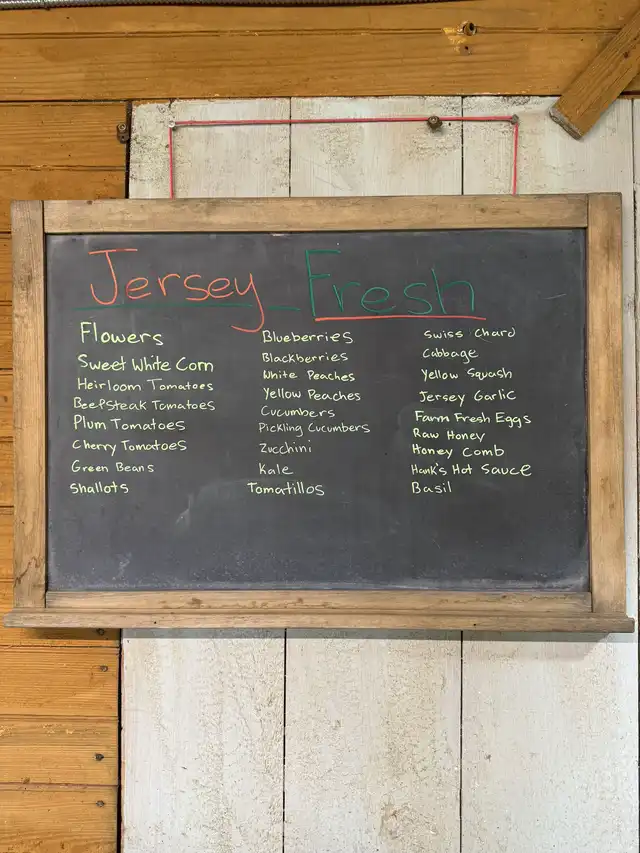 Jersey Fresh
Flowers
Sweet White Corn
Heirloom Tomatoes
Beefsteak Tomatoes
Plum Tomatoes
Cherry Tomatoes
Green Beans
Shallots
Blueberries
Blackberries
White Peaches
Yellow Peaches
Cucumbers
Pickling Cucumbers
Zucchini
Kale
Tomatillos
Swiss Chard
Cabbage
Yellow Squash
Jersey Garlic
Farm Fresh Eggs
Raw Honey
Honey Comb
Hank's Hot Sauce
Basil